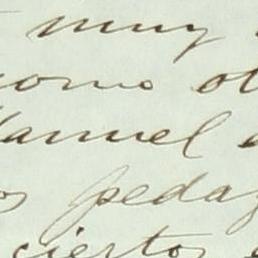 muy
como ot
Manuel d
os pedaz
ciertos